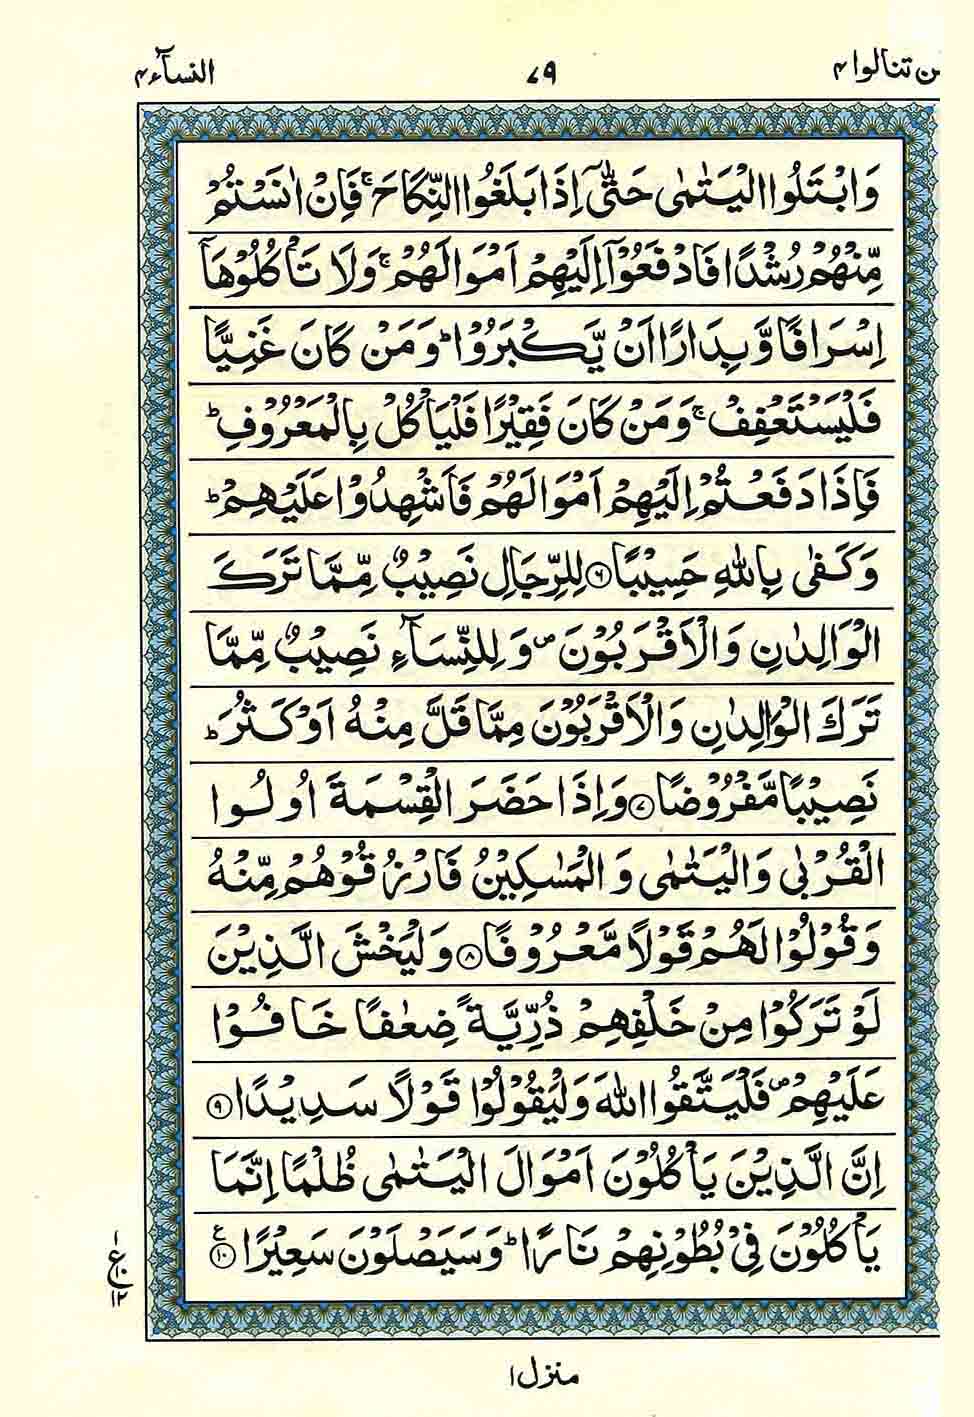 ن تنالوا ۴
۷۹
النسآء ۴
وَابْتَلُوا الْيَتٰمٰى حَتّٰۤى اِذَا بَلَغُوا النِّكَاحَ ۚ فَاِنْ اٰنَسْتُمْ
مِّنْهُمْ رُشْدًا فَادْفَعُوْۤا اِلَيْهِمْ اَمْوَالَهُمْ ۚ وَلَا تَاْكُلُوْهَاۤ
اِسْرَافًا وَّبِدَارًا اَنْ يَّكْبَرُوْا ؕ وَمَنْ كَانَ غَنِيًّا
فَلْيَسْتَعْفِفْ ۚ وَمَنْ كَانَ فَقِيْرًا فَلْيَاْكُلْ بِالْمَعْرُوْفِ ؕ
فَاِذَا دَفَعْتُمْ اِلَيْهِمْ اَمْوَالَهُمْ فَاَشْهِدُوْا عَلَيْهِمْ ؕ
وَكَفٰى بِاللّٰهِ حَسِيْبًا ۶ لِلرِّجَالِ نَصِيْبٌ مِّمَّا تَرَكَ
الْوَالِدٰنِ وَالْاَقْرَبُوْنَ ۪ وَلِلنِّسَآءِ نَصِيْبٌ مِّمَّا
تَرَكَ الْوَالِدٰنِ وَالْاَقْرَبُوْنَ مِمَّا قَلَّ مِنْهُ اَوْ كَثُرَ ؕ
نَصِيْبًا مَّفْرُوْضًا ۷ وَاِذَا حَضَرَ الْقِسْمَةَ اُولُوا
الْقُرْبٰى وَالْيَتٰمٰى وَالْمَسٰكِيْنُ فَارْزُقُوْهُمْ مِّنْهُ
وَقُوْلُوْا لَهُمْ قَوْلًا مَّعْرُوْفًا ۸ وَلْيَخْشَ الَّذِيْنَ
لَوْ تَرَكُوْا مِنْ خَلْفِهِمْ ذُرِّيَّةً ضِعٰفًا خَافُوْا
عَلَيْهِمْ ۪ فَلْيَتَّقُوا اللّٰهَ وَلْيَقُوْلُوْا قَوْلًا سَدِيْدًا ۹
اِنَّ الَّذِيْنَ يَاْكُلُوْنَ اَمْوَالَ الْيَتٰمٰى ظُلْمًا اِنَّمَا
يَاْكُلُوْنَ فِيْ بُطُوْنِهِمْ نَارًا ؕ وَسَيَصْلَوْنَ سَعِيْرًا ۱۰ ع
۱
ع ۱۰
۱۲
منزل ۱